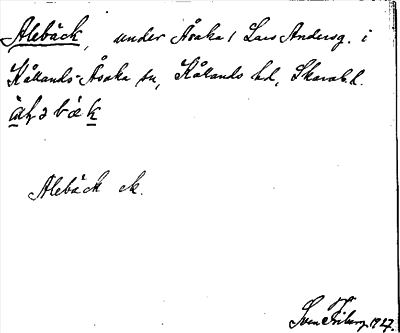 Alebäck, under Åsaka 1 Lars Andersg. i
Kållands-Åsaka sn, Kållands hd, Skarab.l.
Alebäck ck.
Sven Friberg 1927.